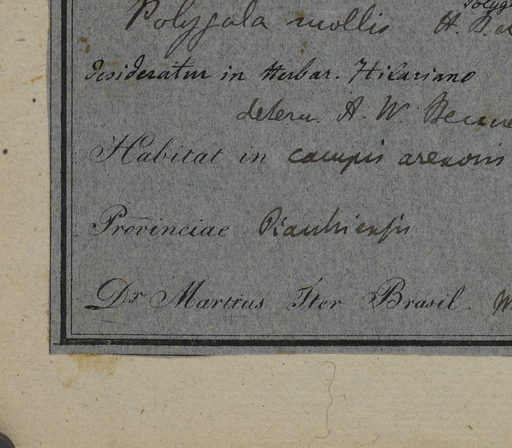 Polygala mollis H. B.
desideratur in Herbar. Hilariano
determ. A. W. Benne
Habitat in campis arenosis
Provinciae Piauhiensis
Dr Martius Iter Brasil.